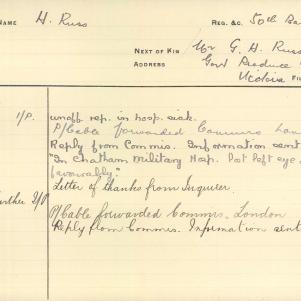 NAME H. Russ REG. &C. 50th Ba
NEXT OF KIN Mr G. H. Russ
ADDRESS Govt Produce
Victoria FI
1/P. unoff rep. in hosp. sick.
P/Cable forwarded Commrs Lon
Reply from Commis. Information sent
"In Chatham Military Hosp. left eye
favorably."
Letter of thanks from Inquirer.
urther I/P P/Cable forwarded Commis. London
Reply from Commis. Information sent